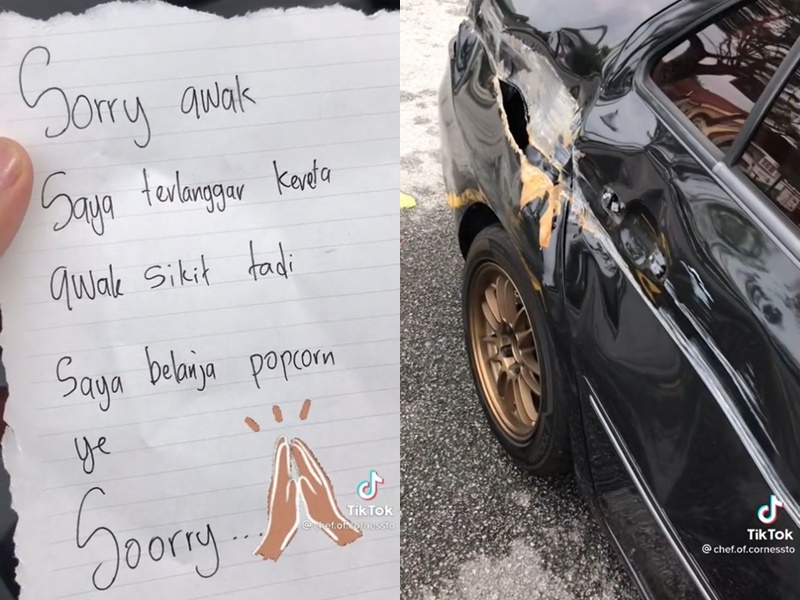 Sorry awak
Saya terlanggar kereta
awak sikit tadi
Saya belanja popcorn
ye
Soorry...
TikTok
@chef.of.cornessto
TikTok
@chef.of.cornessto